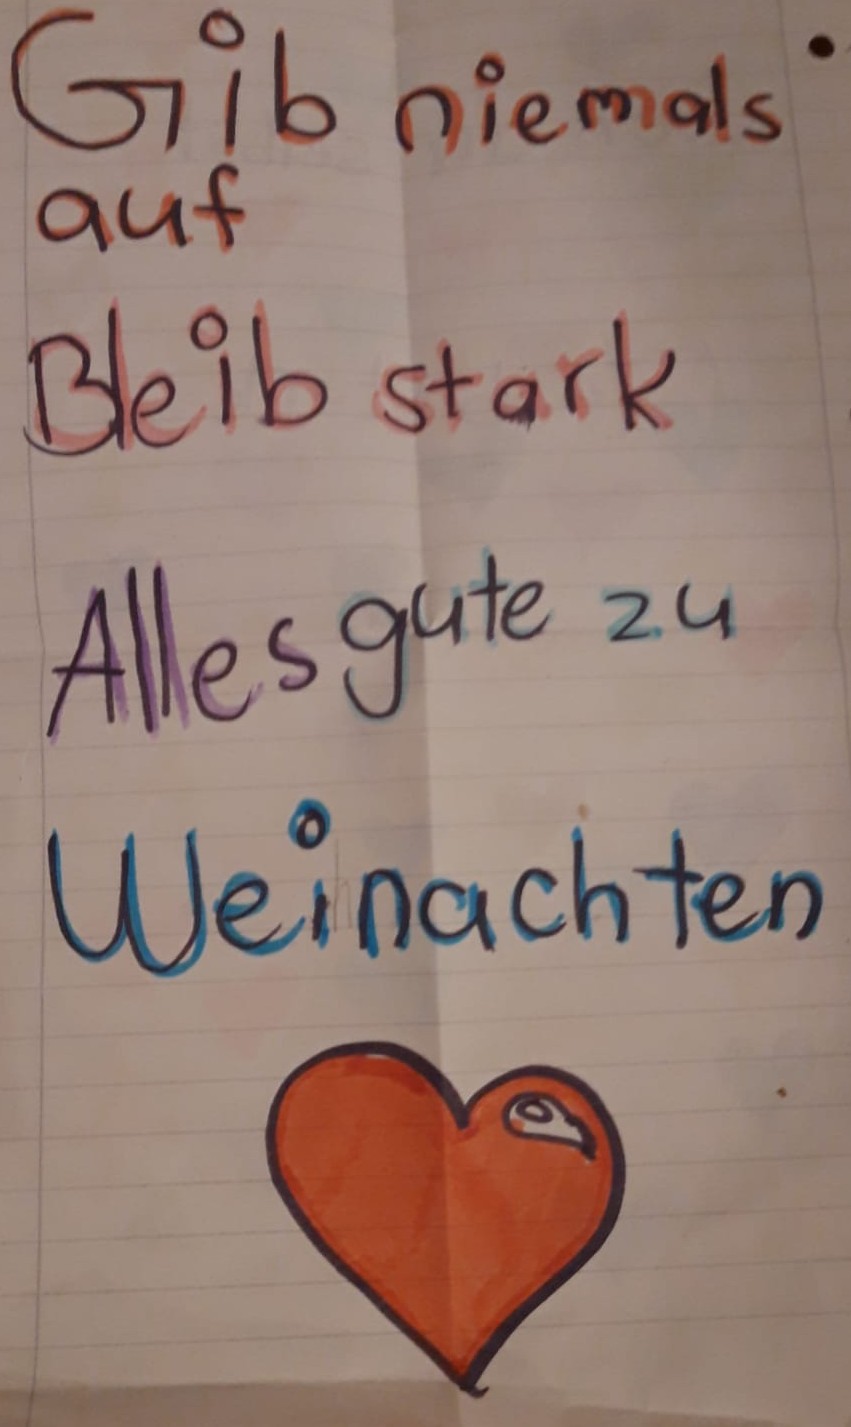 Gib niemals
auf
Bleib stark
Alles gute zu
Weinachten